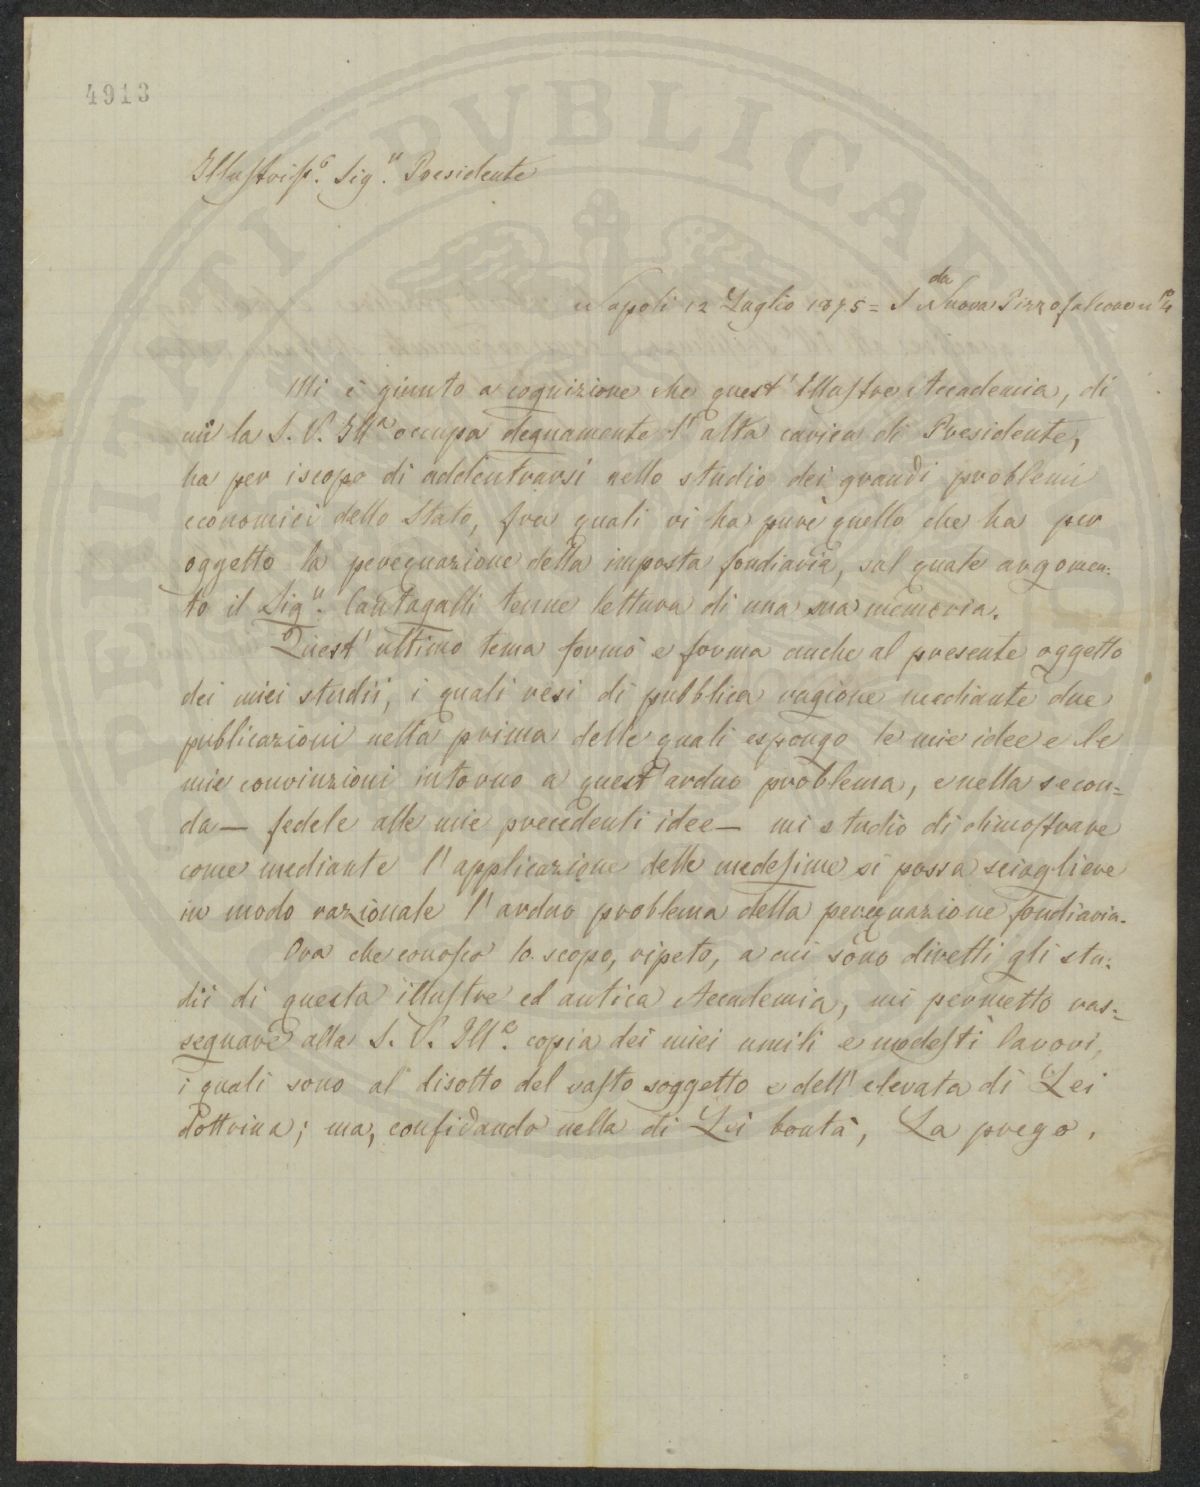 4913
Illustriss.º Sig.r Presidente
Napoli 12 Luglio 1875 = S.da Nuova Pizzofalcone nº 4
Mi è giunto a cognizione che quest' Illustre Accademia, di
cui la S. V. Ill.a occupa degnamente l' alta carica di Presidente,
ha per iscopo di addentrarsi nello studio dei grandi problemi
economici dello Stato, fra quali vi ha pure quello che ha per
oggetto la perequazione della imposta fondiaria, sul quale argomen=
to il Sig.r Cantagalli tenne lettura di una sua memoria.
Quest' ultimo tema formò e forma anche al presente oggetto
dei miei studii, i quali resi di pubblica ragione mediante due
pubblicazioni nella prima delle quali espongo le mie idee e le
mie convinzioni intorno a quest' arduo problema, e nella secon=
da — fedele alle mie precedenti idee — mi studio di dimostrare
come mediante l' applicazione delle medesime si possa sciogliere
in modo razionale l' arduo problema della perequazione fondiaria.
Ora che conosco lo scopo, ripeto, a cui sono diretti gli stu=
dii di questa illustre ed antica Accademia, mi permetto ras=
segnare alla S. V. Ill.a copia dei miei umili e modesti lavori,
i quali sono al disotto del vasto soggetto e dell' elevata di Lei
dottrina; ma, confidando nella di Lei bontà, La prego,
PERTATI PVBLICAE